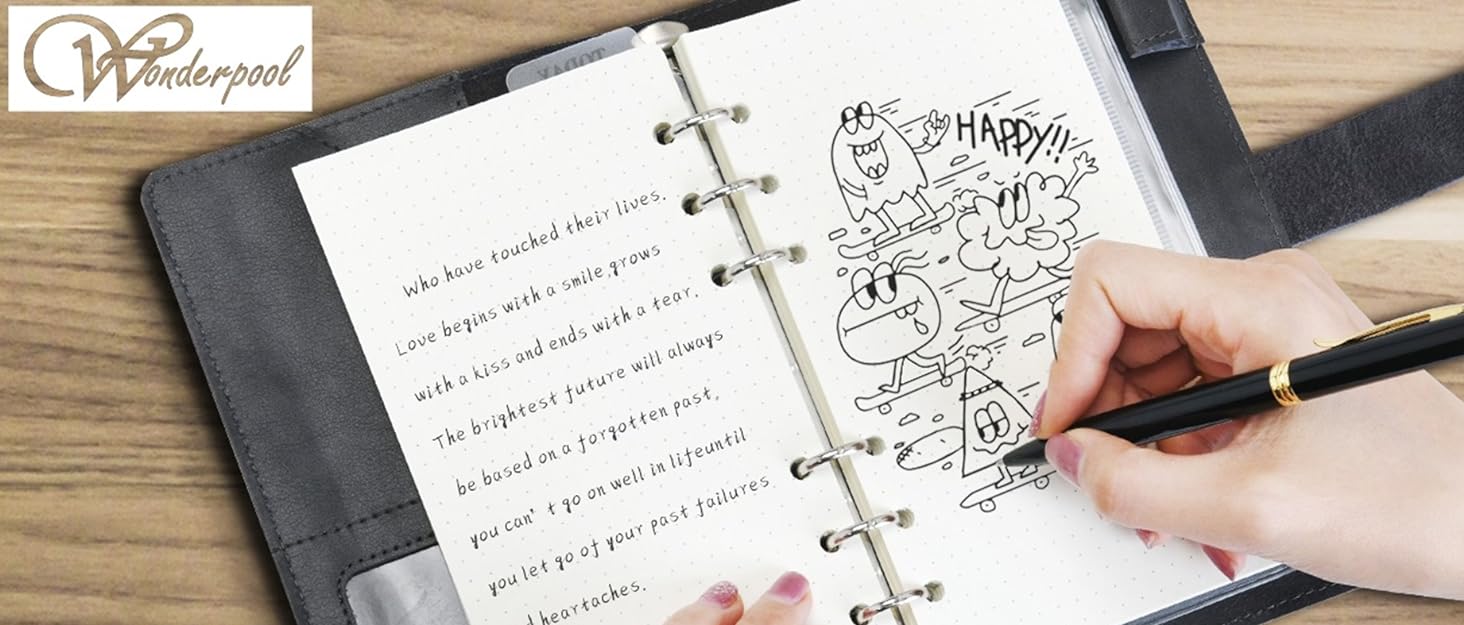 Wonderpool
TODAY
Who have touched their lives.
Love begins with a smile,grows
with a kiss and ends with a tear.
The brightest future will always
be based on a forgotten past,
you can't go on well in lifeuntil
you let go of your past failures
heartaches.
HAPPY!!